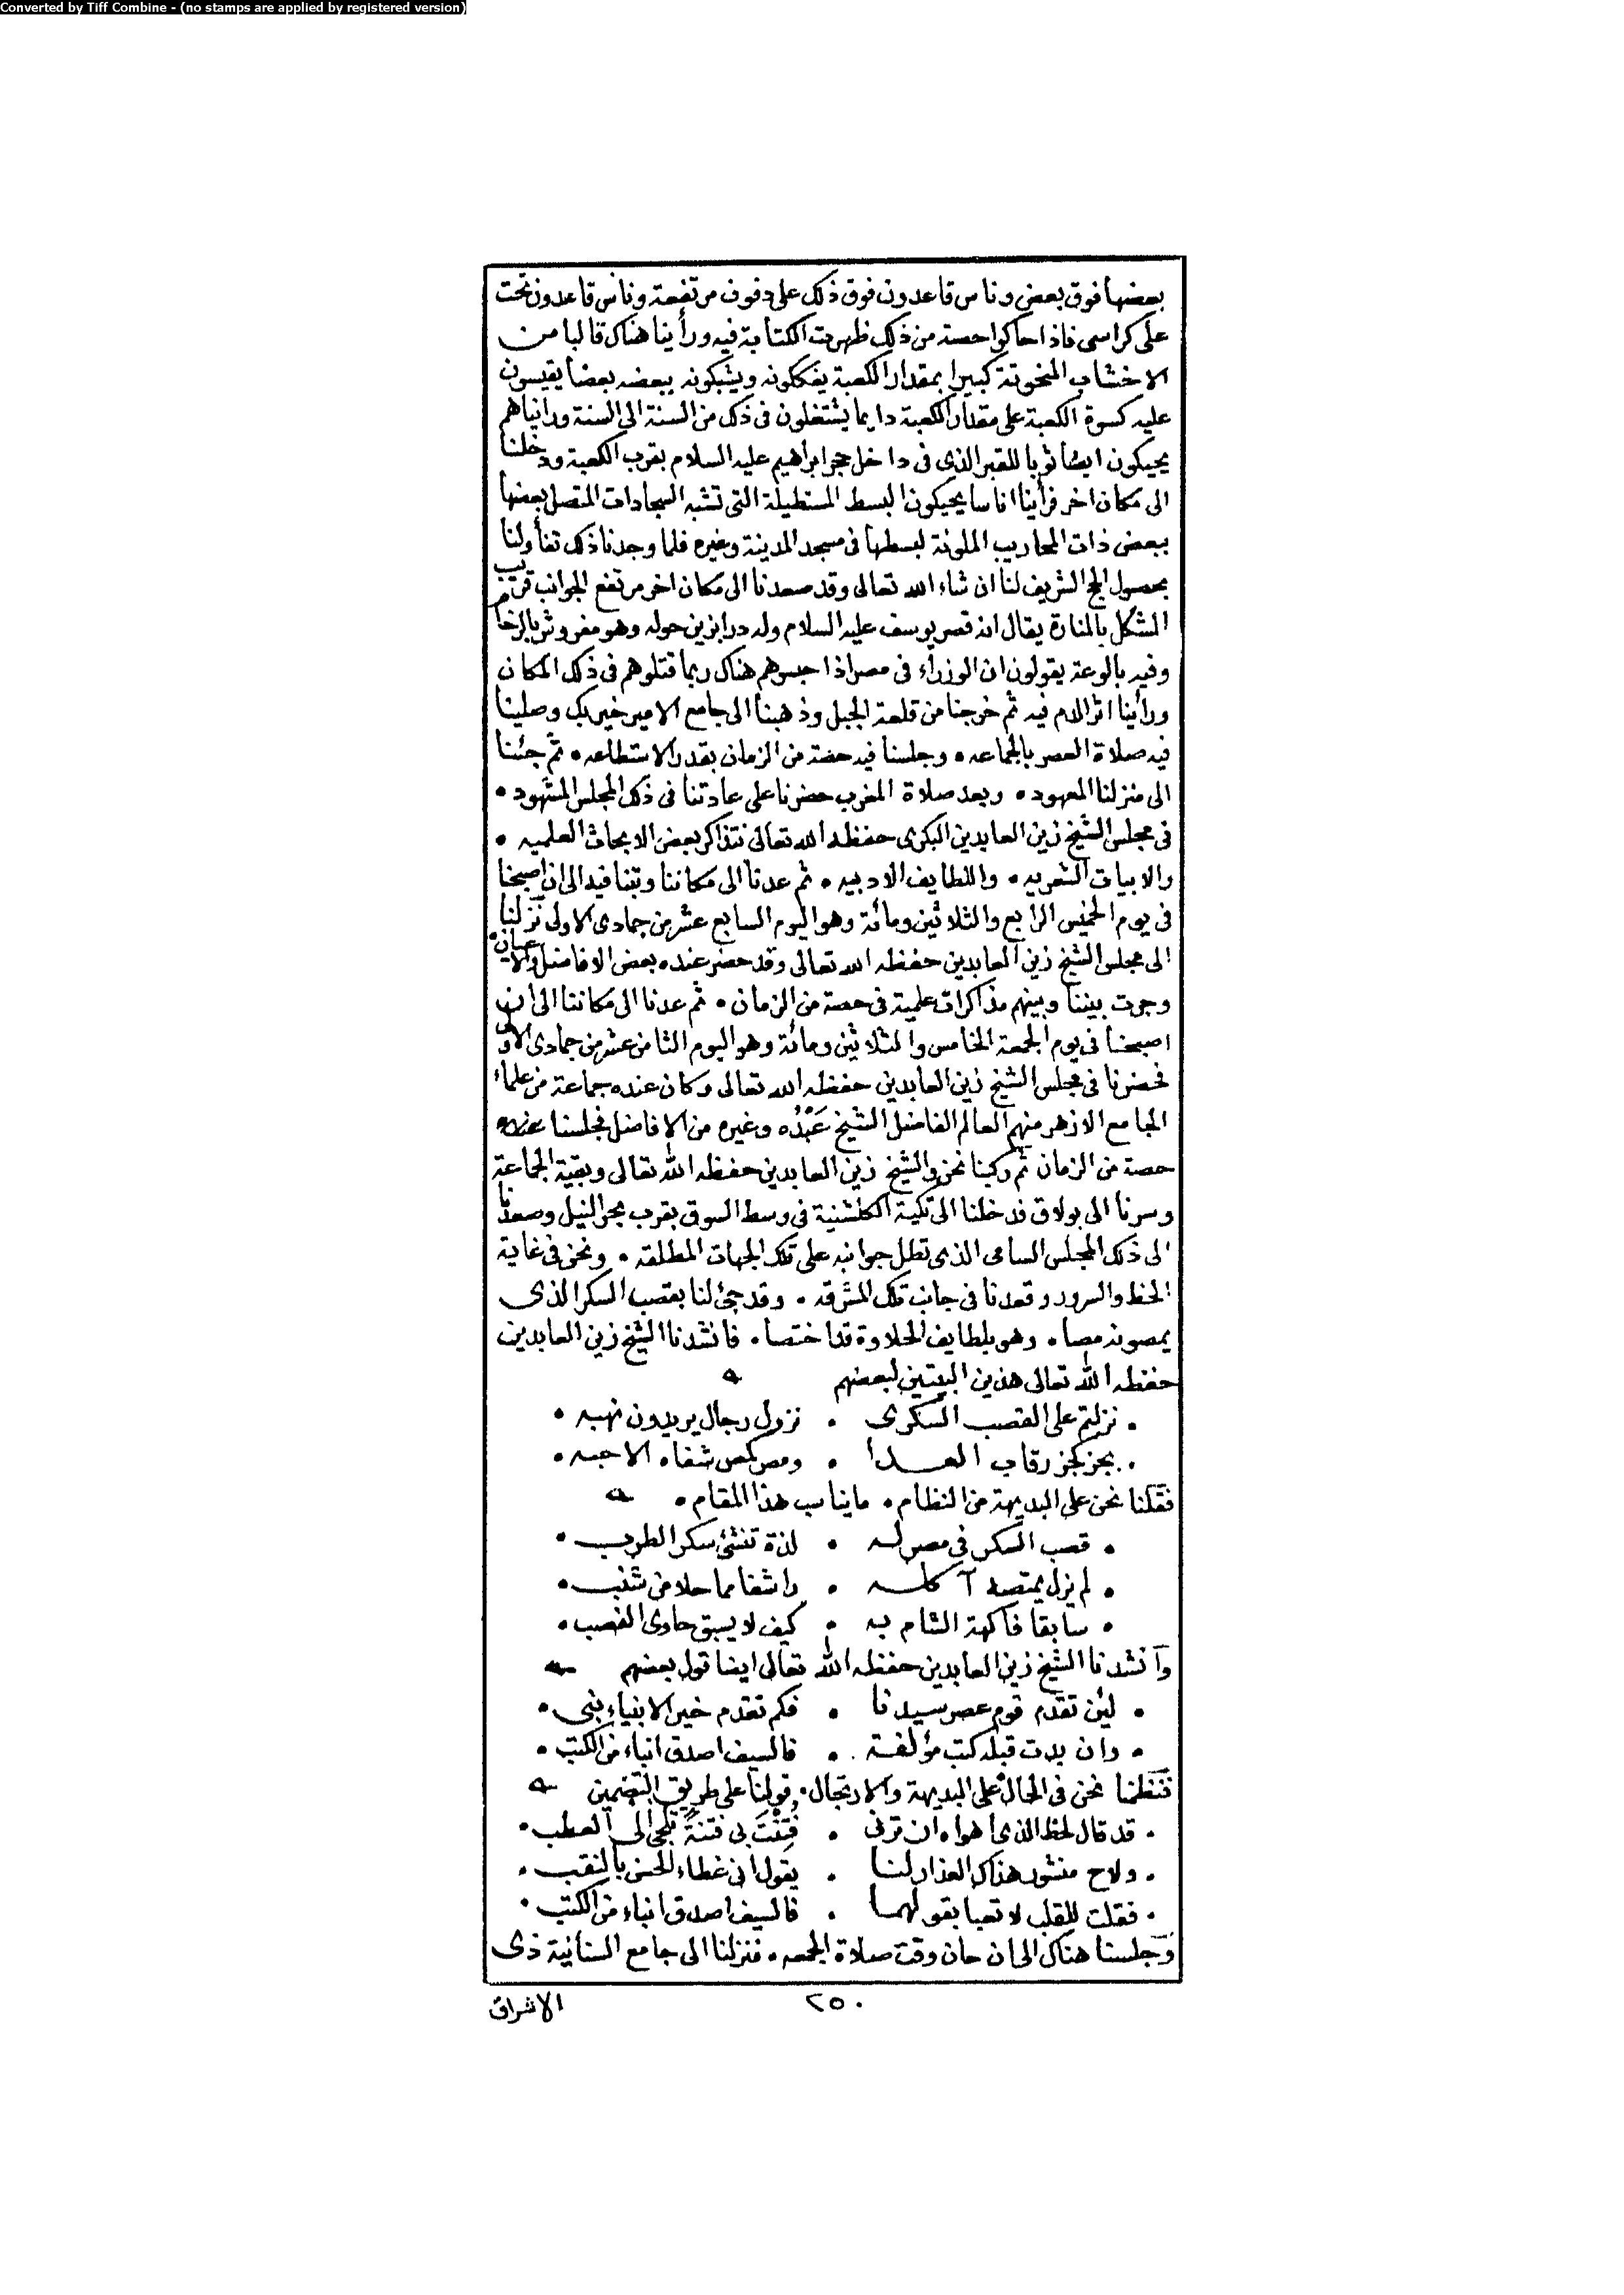 Converted by Tiff Combine - (no stamps are applied by registered version)
بعضها فوق بعض وناس قاعدون فوق ذلك على دفوف مرتفعة وناس قاعدون تحت
على كراسى فاذا حاكوا حصة من ذلك ظهرت الكتابة فيه ورأينا هناك قالبا من
الاخشاب المنحوتة كبيرا بمقدار الكعبة يفككونه ويشبكونه ببعضه بعضا يقيسون
عليه كسوة الكعبة على مقدار الكعبة دايما يشتغلون فى ذلك من السنة الى السنة ورأيناهم
يحيكون ايضا ثوبا للقبر الذى فى داخل حجر ابراهيم عليه السلام بقرب الكعبة ودخلنا
الى مكان اخر فرأينا اناسا يحيكون البسط المستطيلة التى تشبه السجادات المتصل بعضها
ببعض ذات المحاريب الملونة لبسطها فى مسجد المدينة وغيره فلما وجدنا ذلك تفأولنا
بحصول الحج الشريف لنا ان شاء الله تعالى وقد صعدنا الى مكان اخر مرتفع الجوانب قريب
الشكل بالمنارة يقال انه قصر يوسف عليه السلام وله درابزين حوله وهو مفروش بالرخام
وفيه بالوعة يقولون ان الوزراء فى مصر اذا حبسوهم هناك ربما قتلوهم فى ذلك المكان
ورأينا اثر الدم فيه ثم خرجنا من قلعة الجبل وذهبنا الى جامع الامير خير بك وصلينا
فيه صلاة العصر بالجماعه • وجلسنا فيه حصة من الزمان بقدر الاستطاعه • ثم جئنا
الى منزلنا المعهود • وبعد صلاة المغرب حضرنا على عادتنا فى ذلك المجلس المشهود •
فى مجلس الشيخ زين العابدين البكرى حفظه الله تعالى نتذاكر بعض الابحاث العلميه •
والابيات الشعريه • واللطايف الادبيه • ثم عدنا الى مكاننا وبتنا فيه الى ان اصبحنا
فى يوم الخميس الرابع والثلاثين ومائة وهو اليوم السابع عشر من جمادى الاولى نزلنا
الى مجلس الشيخ زين العابدين حفظه الله تعالى وقد حضر عنده بعض الافاضل والاعيان •
وجرت بيننا وبينهم مذاكرات علمية فى حصة من الزمان • ثم عدنا الى مكاننا الى ان
اصبحنا فى يوم الجمعة الخامس والثلاثين ومائة وهو اليوم الثامن عشر من جمادى الاولى
فحضرنا فى مجلس الشيخ زين العابدين حفظه الله تعالى وكان عنده جماعة من علماء
الجامع الازهر منهم العالم الفاضل الشيخ عَبْدُه وغيره من الافاضل فجلسنا عنده
حصة من الزمان ثم ركبنا نحن والشيخ زين العابدين حفظه الله تعالى وبقية الجماعة
وسرنا الى بولاق فدخلنا الى تكية الكلشنية فى وسط السوق بقرب بحر النيل وصعدنا
الى ذلك المجلس السامى الذى تطل جوانبه على تلك الجهات المطلقه • ونحن فى غاية
الحظ والسرور وقعدنا فى جانب تلك المشرقه • وقد جئ لنا بقصب السكر الذى
يمصونه مصا • وهو بلطايف الحلاوة قد اختصا • فانشدنا الشيخ زين العابدين
حفظه الله تعالى هذين البيتين لبعضهم
• نزلتم على القصب السكرى • نزول رجال يريدون نهبه •
• بجز كجز رقاب العدا • ومص كمص شفاه الاحبه •
فقلنا نحن على البديهة من النظام • ما يناسب هذا المقام •
• قصب السكر فى مصر له • لذة تنشئ سكر الطرب •
• لم يزل يمتصه آكله • راشفا مما حلا من شنب •
• سابقا فاكهة الشام به • كيف لا يسبق حاوى القصب •
وانشدنا الشيخ زين العابدين حفظه الله تعالى ايضا قول بعضهم
• لئن تقدم قوم عصر سيدنا • فكم تقدم خير الانبياء نبى •
• وان بدت قبله كتب مؤلفة • فالسيف اصدق انباء من الكتب •
فنظمنا نحن فى الحال على البديهة والارتجال • قولنا على طريق التضمين
• قد قال لحظ الذى اهواه ان ترنى • فُتِنْتَ بى فتنةً تلجى الى العطب •
• ولاح منشور هناك العذار لنا • يقول انى غطاء الحسن بالنقب •
• فقلت للقلب لا تعبا بقولهما • فالسيف اصدق انباء من الكتب •
وجلسنا هناك الى ان حان وقت صلاة الجمعه • فنزلنا الى جامع السنانية ذى
٢٥٠
الاشراق